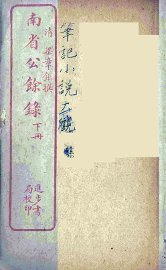 筆記小說大觀
清 梁章鉅撰
南省公餘錄 下冊
進步書局校印